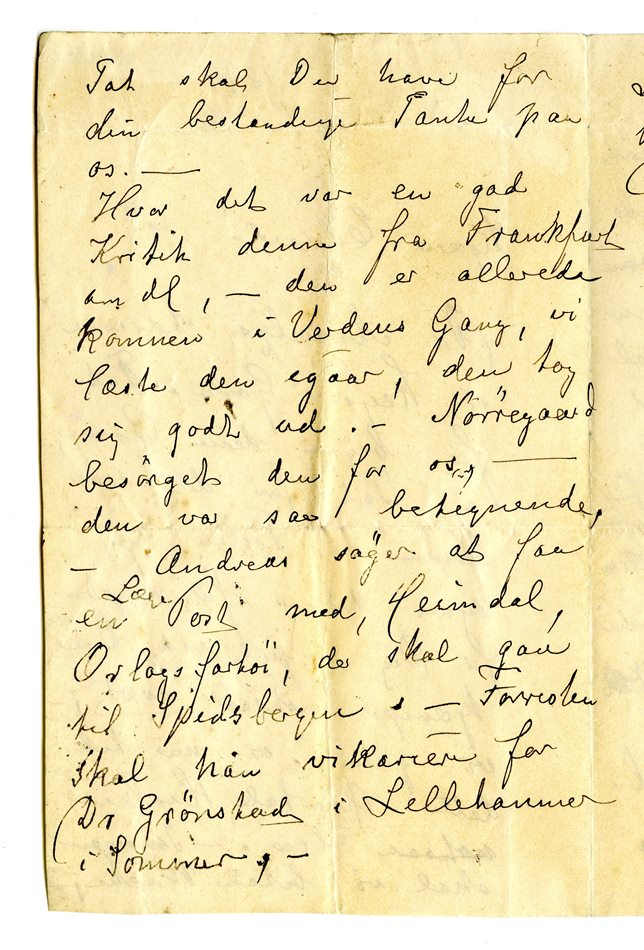 Tak skal Du have for
din bestandige Tanke paa
os. —
Hvor det var en god
Kritik denne fra Frankfurt
am M, — den er allerede
kommen i Verdens Gang, vi
læste den igaar, den tog
sig godt ud. — Nørregaard
besörget den for os,
den var saa betegnende,
— Andreas söger at faa
en Læge Post med, Heimdal,
Orlogsfartöi, der skal gaa
til Spidsbergen, — Forresten
skal han vikariere for
Dr Grönstad i Lillehammer
i Sommer, —